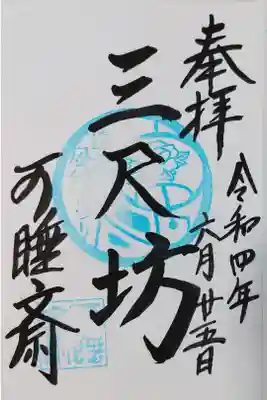 奉拝
令和四年
六月廿五日
三尺坊
可睡斎